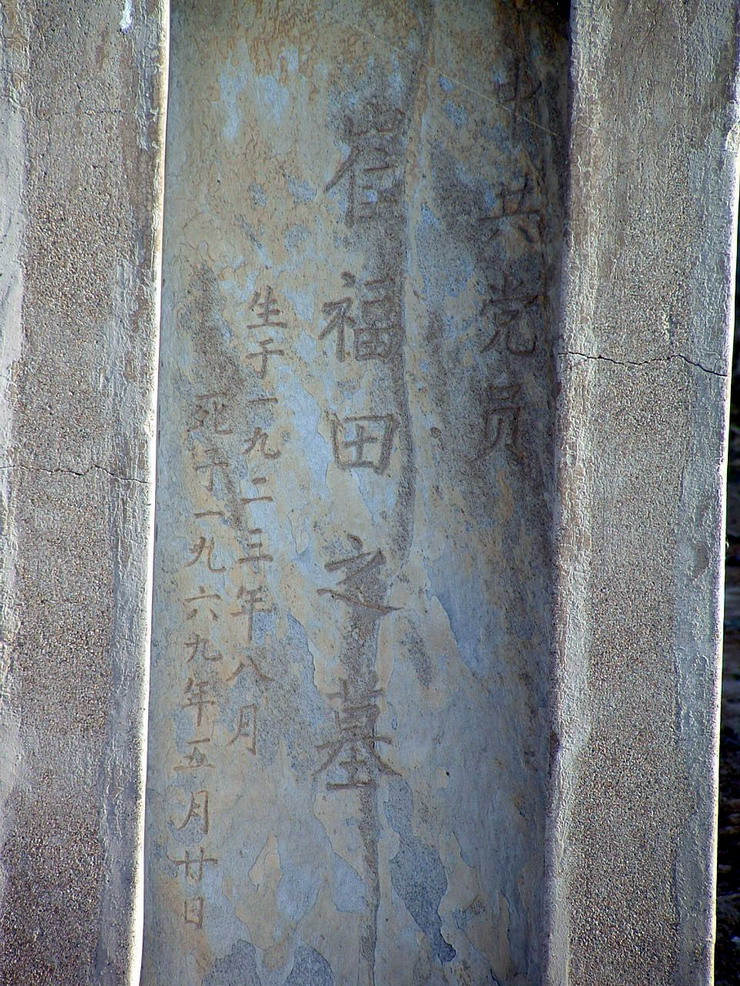 中共党员
崔福田之墓
生于一九二三年八月
死于一九六九年五月廿日